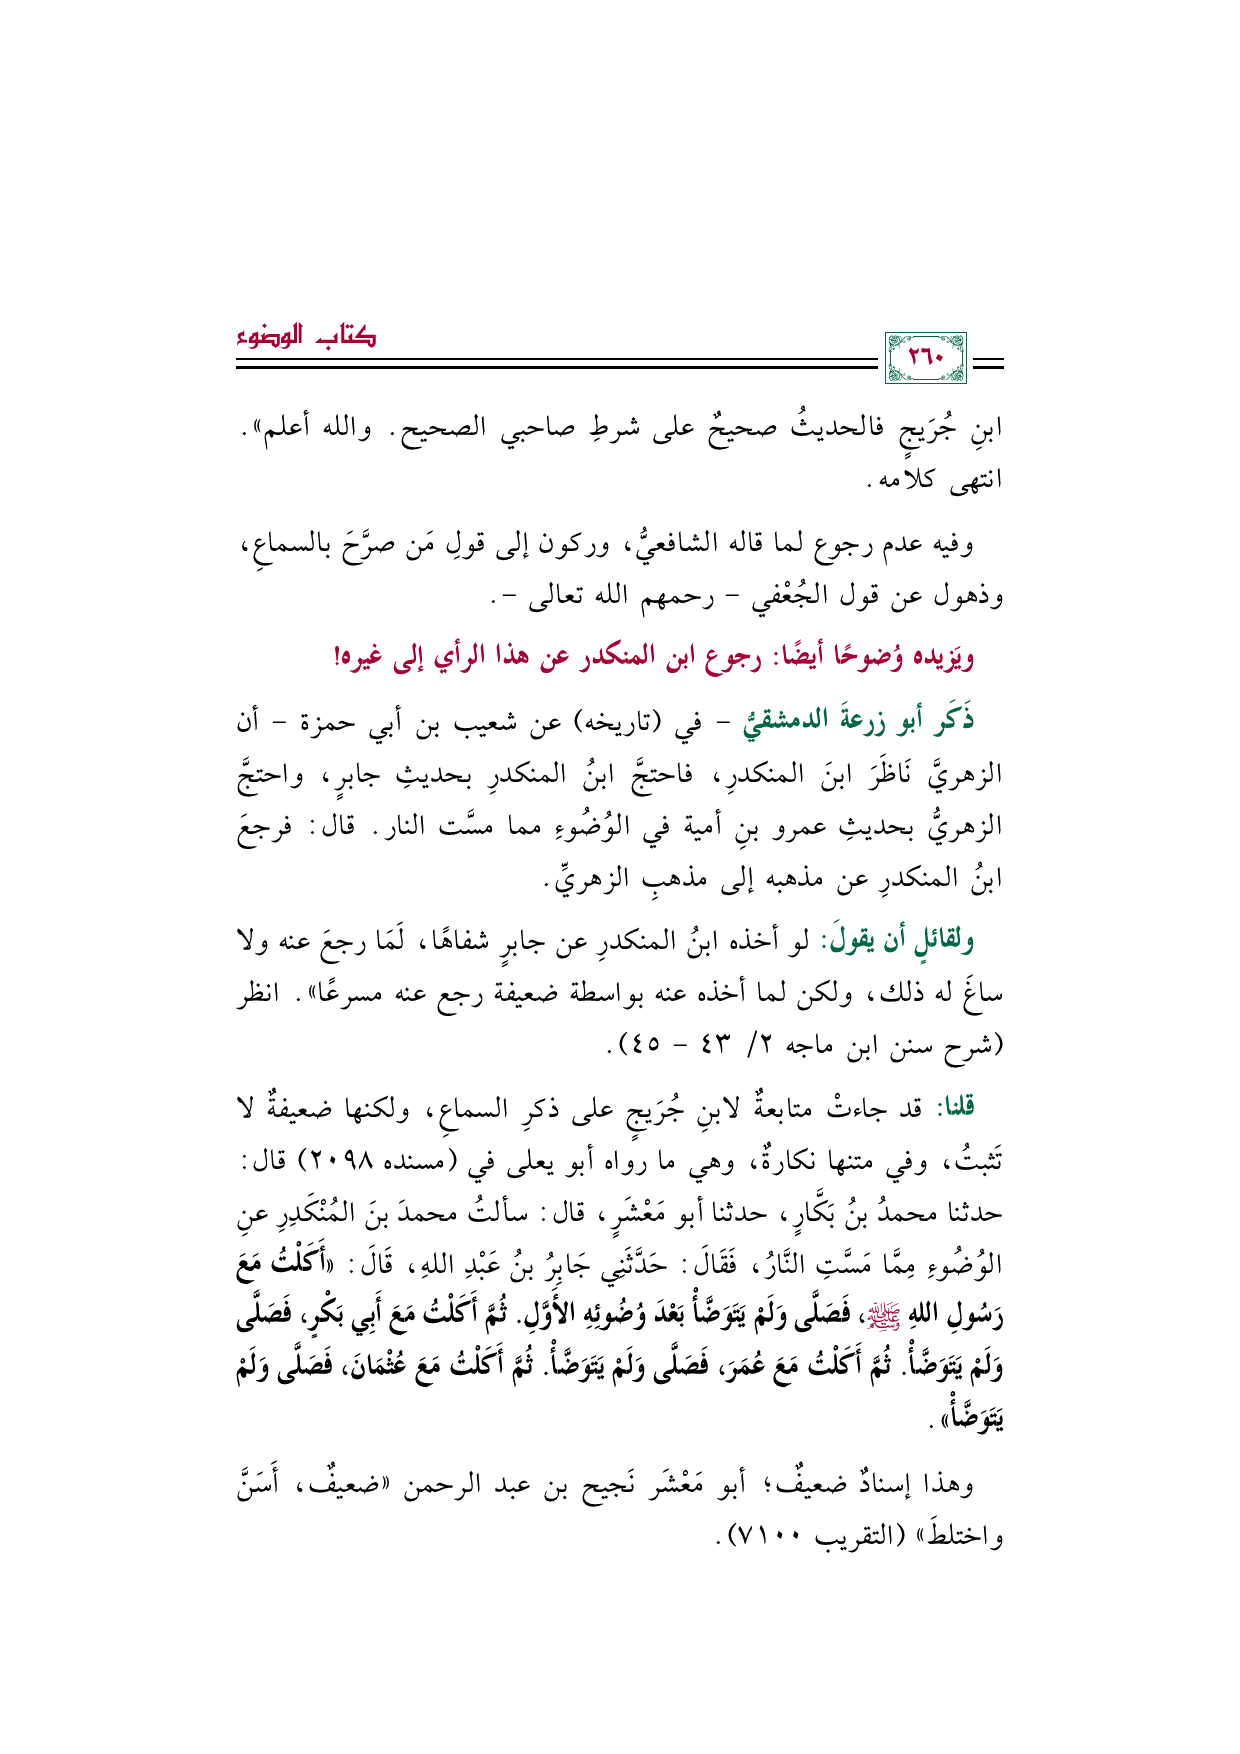 كتاب الوضوء
٢٦٠
ابنِ جُرَيجٍ فالحديثُ صحيحٌ على شرطِ صاحبي الصحيح. والله أعلم».
انتهى كلامه.
وفيه عدم رجوع لما قاله الشافعيُّ، وركون إلى قولِ مَن صرَّحَ بالسماعِ،
وذهول عن قول الجُعْفي - رحمهم الله تعالى -.
ويَزيده وُضوحًا أيضًا: رجوع ابن المنكدر عن هذا الرأي إلى غيره!
ذَكَر أبو زرعةَ الدمشقيُّ - في (تاريخه) عن شعيب بن أبي حمزة - أن
الزهريَّ نَاظَرَ ابنَ المنكدرِ، فاحتجَّ ابنُ المنكدرِ بحديثِ جابرٍ، واحتجَّ
الزهريُّ بحديثِ عمرو بنِ أمية في الوُضُوءِ مما مسَّت النار. قال: فرجعَ
ابنُ المنكدرِ عن مذهبه إلى مذهبِ الزهريِّ.
ولقائلٍ أن يقولَ: لو أخذه ابنُ المنكدرِ عن جابرٍ شفاهًا، لَمَا رجعَ عنه ولا
ساغَ له ذلك، ولكن لما أخذه عنه بواسطة ضعيفة رجع عنه مسرعًا». انظر
(شرح سنن ابن ماجه ٢/ ٤٣ - ٤٥).
قلنا: قد جاءتْ متابعةٌ لابنِ جُرَيجٍ على ذكرِ السماعِ، ولكنها ضعيفةٌ لا
تَثبتُ، وفي متنها نكارةٌ، وهي ما رواه أبو يعلى في (مسنده ٢٠٩٨) قال:
حدثنا محمدُ بنُ بَكَّارٍ، حدثنا أبو مَعْشَرٍ، قال: سألتُ محمدَ بنَ المُنْكَدِرِ عنِ
الوُضُوءِ مِمَّا مَسَّتِ النَّارُ، فَقَالَ: حَدَّثَنِي جَابِرُ بنُ عَبْدِ اللهِ، قَالَ: «أَكَلْتُ مَعَ
رَسُولِ اللهِ ﷺ، فَصَلَّى وَلَمْ يَتَوَضَّأْ بَعْدَ وُضُوئِهِ الأَوَّلِ. ثُمَّ أَكَلْتُ مَعَ أَبِي بَكْرٍ، فَصَلَّى
وَلَمْ يَتَوَضَّأْ. ثُمَّ أَكَلْتُ مَعَ عُمَرَ، فَصَلَّى وَلَمْ يَتَوَضَّأْ. ثُمَّ أَكَلْتُ مَعَ عُثْمَانَ، فَصَلَّى وَلَمْ
يَتَوَضَّأْ».
وهذا إسنادٌ ضعيفٌ؛ أبو مَعْشَر نَجيح بن عبد الرحمن «ضعيفٌ، أَسَنَّ
واختلطَ» (التقريب ٧١٠٠).